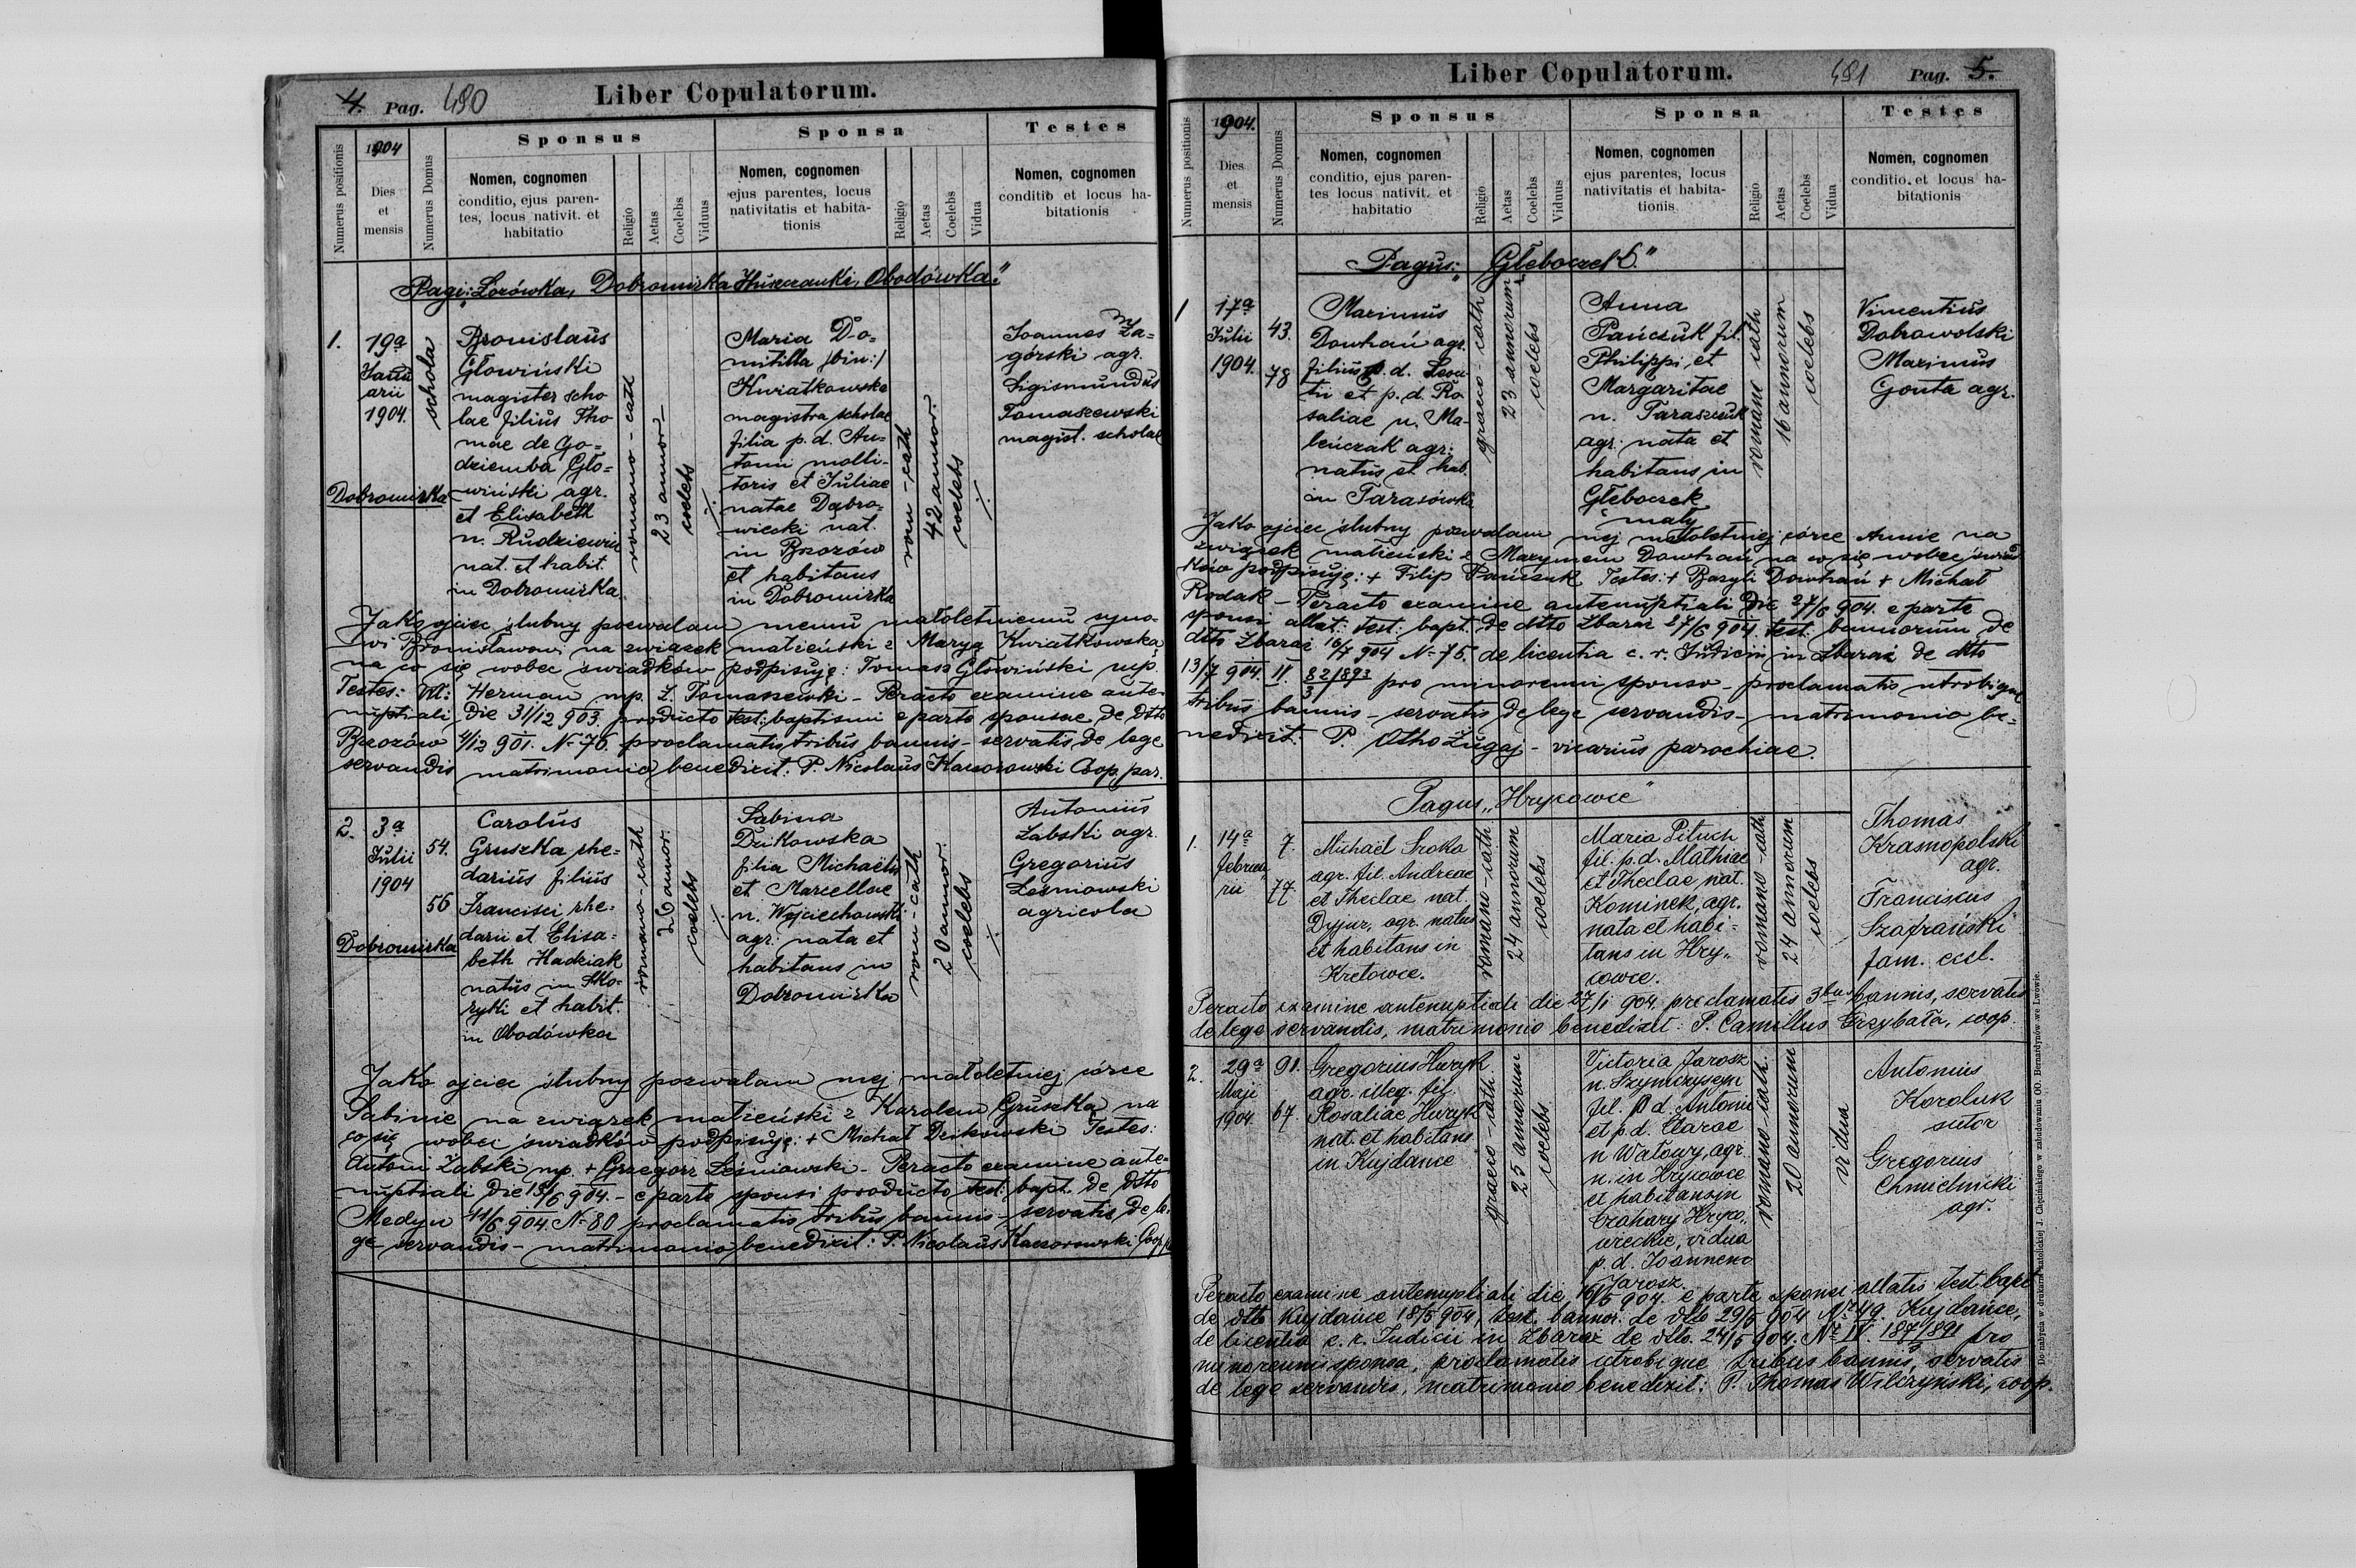 4. Pag. 480
Liber Copulatorum.
Numerus positionis
1904
Dies
et
mensis
Numerus Domus
Sponsus
Nomen, cognomen
conditio, ejus paren-
tes, locus nativit. et
habitatio
Religio
Aetas
Coelebs
Viduus
Sponsa
Nomen, cognomen
ejus parentes, locus
nativitatis et habita-
tionis
Religio
Aetas
Coelebs
Vidua
Testes
Nomen, cognomen
conditio et locus ha-
bitationis
Pagi: „Lozówka, Dobromirka Huszczanki, Obodówka"
1.
19a
Janu
arii
1904.
schola
Dobromirka
Bronislaus
Głowiński
magister scho
lae filius Tho
mae de Go=
dziemba Gło=
wiński agr.
et Elisabeth
n. Rudziewicz
nat. et habit.
in Dobromirka
romano-cath
23 annor
coelebs
Maria Do=
mitilla /bin:/
Kwiatkowska
magistra scholae
filia p. d. An=
tonii molli-
toris et Juliae
natae Dąbro=
wiecki nat.
in Brzozów
et habitans
in Dobromirka
rom-cath
42 annor.
coelebs
Joannes Za=
górski agr.
Sigismundus
Tomaszewski
magist. scholae
Jako ojciec ślubny pozwalam memu małoletniemu syno=
wi Bronisławowi na związek małżeński z Maryą Kwiatkowską
na co się wobec świadków podpisuję: Tomasz Głowiński mp.
Testes: Wł: Herman mp. Z. Tomaszewski - Peracto examine ante=
nuptiali die 31/12 903. producto test: baptismi e parte sponsae de dtto
Brzozów 4/12 901. N-76. proclamatis tribus bannis - servatis de lege
servandis matrimonio benedixit: P. Nicolaus Kaczorowski Coop. par.
2.
3a
Julii
1904
54.
56
Dobromirka
Carolus
Gruszka rhe=
darius filius
Francisci rhe=
darii et Elisa=
beth Hadziak
natus in Sko=
ryki et habit.
in Obodówka
romano-cath
26 annor.
coelebs
Sabina
Dzikowska
filia Michaëlis
et Marcellae
n. Wojciechowski
agr. nata et
habitans in
Dobromirka
rom-cath
20 annor.
coelebs
Antonius
Żabski agr.
Gregorius
Leśniowski
agricola
Jako ojciec ślubny pozwalam mej małoletniej córce
Sabinie na związek małżeński z Karolem Gruszką na
co się wobec świadków podpisuję: + Michał Dzikowski Testes:
Antoni Żabski mp. + Grzegorz Leśniowski - Peracto examine ante=
nuptiali die 15/6 904. - e parte sponsi producto test: bapt. de dtto
Medyn 11/6 904. N-80 proclamatis tribus bannis - servatis de le=
ge servandis - matrimonio benedixit: P. Nicolaus Kaczorowski Coop.
Liber Copulatorum.
481 Pag. 5.
Numerus positionis
1904.
Dies
et
mensis
Numerus Domus
Sponsus
Nomen, cognomen
conditio, ejus paren-
tes locus nativit. et
habitatio
Religio
Aetas
Coelebs
Viduus
Sponsa
Nomen, cognomen
ejus parentes, locus
nativitatis et habita-
tionis
Religio
Aetas
Coelebs
Vidua
Testes
Nomen, cognomen
conditio et locus ha-
bitationis
Pagus: „Głeboczek"
1
17a
Julii
1904.
43.
78
Maximus
Dowhań agr.
filius p. d. Leon
tii et p. d. Ro
saliae n. Ma-
leńczak agr.
natus et hab.
in Tarasówka
graeco-cath
23 annorum
coelebs
Anna
Pańczuk fil.
Philippi, et
Margaritae
n. Taraszczuk
agr. nata et
habitans in
Głeboczek
mały
romano cath
16 annorum
coelebs
Vincentius
Dobrowolski
Maximus
Gonta agr.
Jako ojciec ślubny pozwalam mej małoletniej córce Annie na
związek małżeński z Maxymem Dowhań na co się wobec świad
ków podpisuję: + Filip Pańczuk Testes: + Bazyli Dowhań + Michał
Rodak - Peracto examine antenuptiali die 27/6 904. e parte
sponsi allat: test: bapt. de dtto Zbaraż 27/6 904. test. bannorum de
dtto Zbaraż 16/7 904 N-75. de licentia c. r. Judicii in Zbaraż de dtto
13/7 904. II. 82/893 pro minorenni sponso - proclamatis utrobique
3
tribus bannis - servatis de lege servandis - matrimonio be=
nedixit. P. Otho Żugaj - vicarius parochiae.
Pagus „Hrycowce"
1.
14a
februa
rii
7.
77.
Michaël Sroka
agr. fil. Andreae
et Theclae nat.
Dyjur, agr. natus
et habitans in
Kretowce.
romano-cath
24 annorum
coelebs
Maria Pituch
fil. p. d. Mathiae
et Theclae nat.
Kominek, agr.
nata et habi-
tans in Hry„
cowce.
romano-cath
24 annorum
coelebs
Thomas
Krasnopolski
agr.
Franciscus
Szafrański
fam. eccl.
Peracto examine antenuptiali die 27/1 904. proclamatis 3bus bannis, servatis
de lege servandis, matrimonio benedixit: P. Camillus Grzybała, coop.
2.
29a
Maji
1904
91.
67.
Gregorius Huryk
agr. illeg. fil.
Rosaliae Huryk
nat. et habitans
in Kujdance
graeco-cath
25 annorum
coelebs
Victoria Jarosz
n. Szymczyszyn
fil. p d. Antonii
et p. d. Clarae
n Watowy, agr.
n. in Hrycowce
et habitans in
Czahary Hryco„
wieckie, vidua
p. d. Joannem
Jarosz.
romano-cath.
20 annorum
vidua
Antonius
Koroluk
sutor
Gregorius
Chmielnicki
agr.
Peracto examine antenuptiali die 16/5 904. e parte sponsi allatis test. bapt.
de dtto Kujdańce 18/5 904, test. bannor. de dtto 29/5 904 Nr 49. Kujdańce,
de licentia c. r. Judicii in Zbaraż de dtto. 24/5 904. Nr IV. 187/891 pro
3
minorenni sponsa, proclamatis utrobique tribus bannis, servatis
de lege servandis, matrimonio benedixit: P. Thomas Wilczyński, coop.
Do nabycia w drukarni katolickiej J. Chęcińskiego w zabudowaniu OO. Bernardynów we Lwowie.